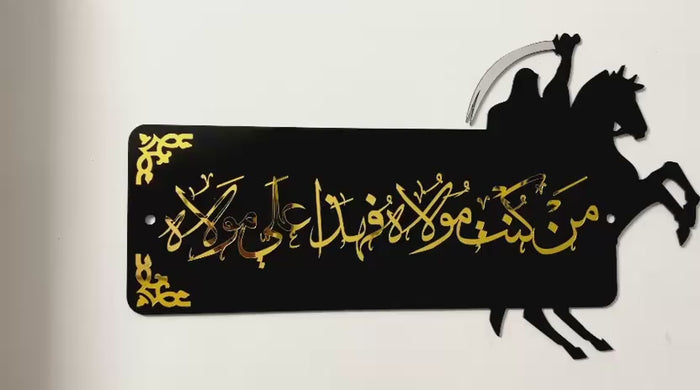 مَنْ كُنْتُ مُولَاهُ فَهذا علي مولاه